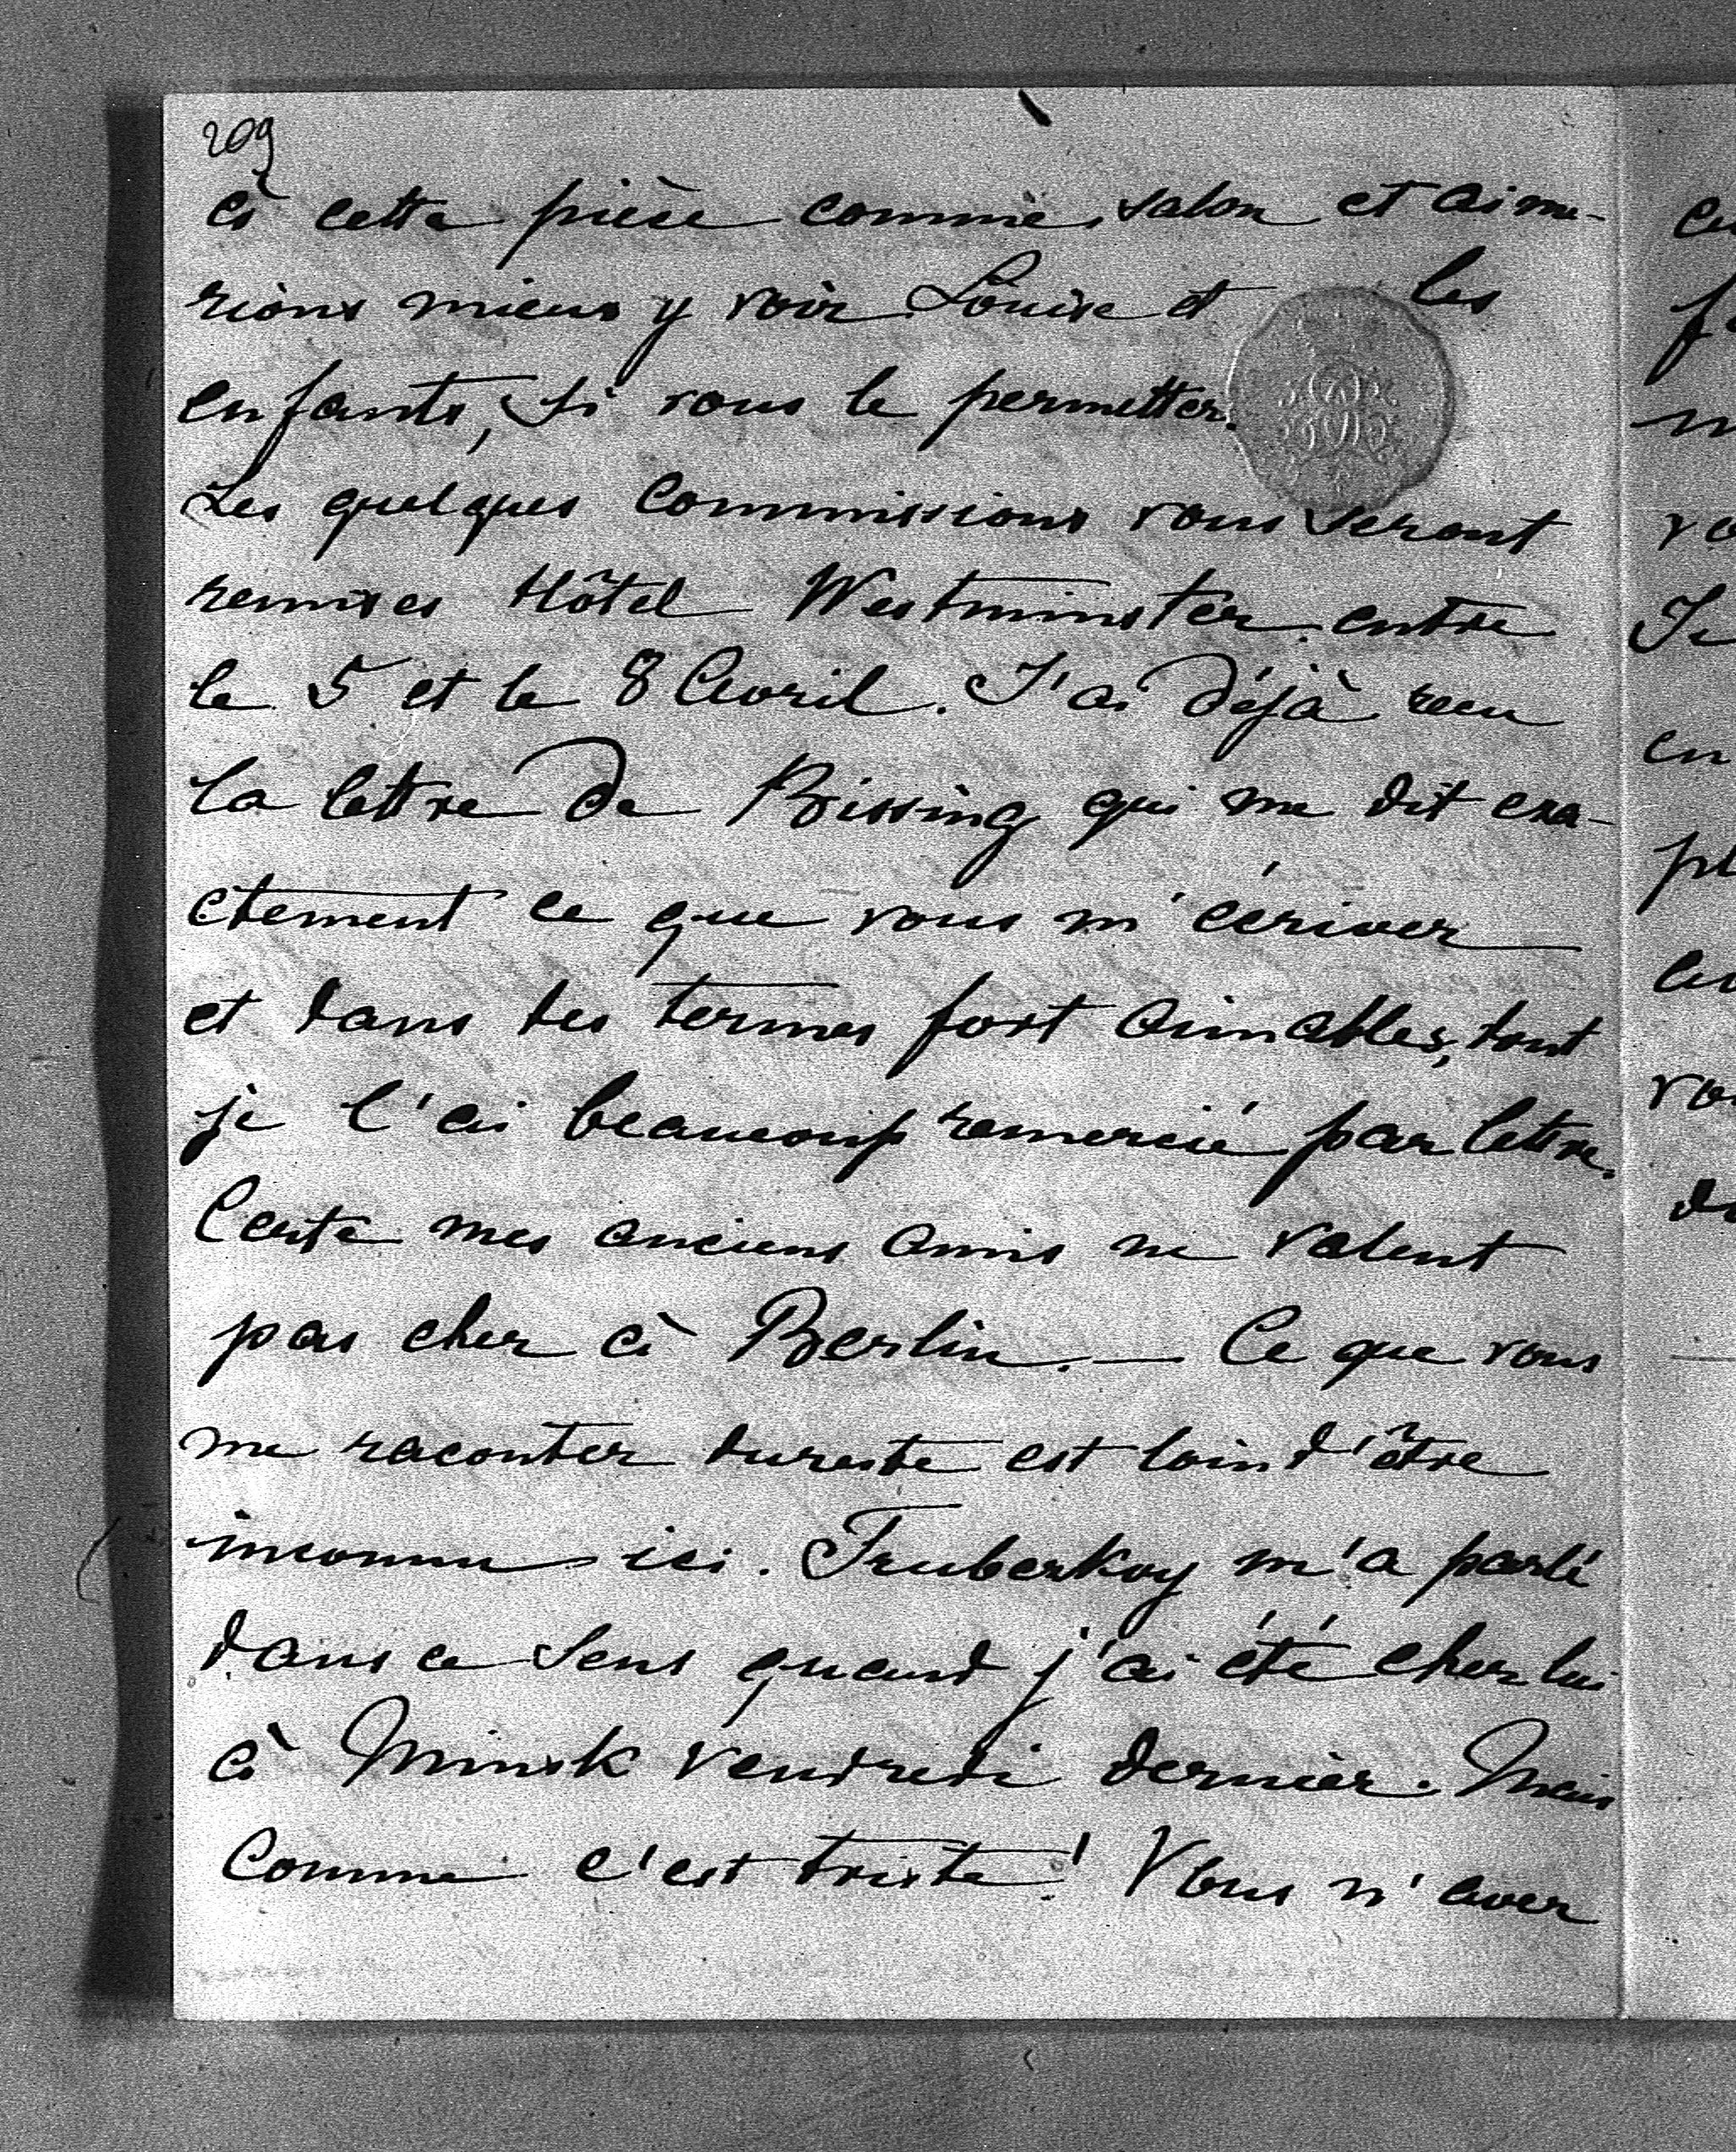 209
à cette pièce comme salon et aime-
rions mieux y voir Louise et les
enfants, si vous le permettez.
Les quelques commissions vous seront
remises Hôtel Westminster entre
le 5 et le 8 Avril. J'ai déjà reçu
la lettre de Bissing qui me dit exa-
ctement ce que vous m'écrivez
et dans des termes fort aimables, dont
je l'ai beaucoup remercié par lettre.
Certe mes anciens amis ne valent
pas cher à Berlin. — Ce que vous
me racontez dureste est loin d'être
inconnu ici. Truberkoy m'a parlé
dans ce sens quand j'ai été chez lui
à Minsk vendredi dernier. Mais
comme c'est triste! Vous n'avez